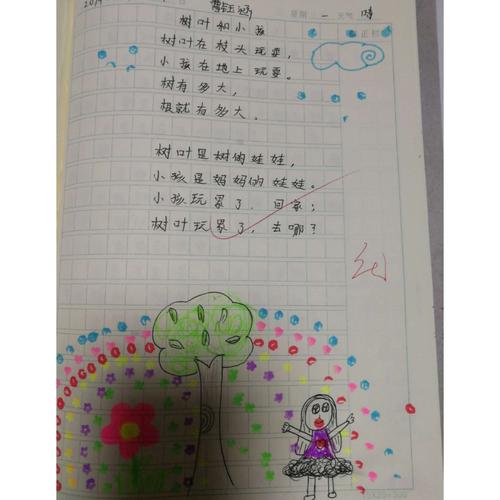 2019
星期 一 天气 晴
树叶和小孩
树叶在枝头玩耍,
小孩在地上玩耍。
树有多大,
根就有多大。
树叶是树的娃娃,
小孩是妈妈的娃娃。
小孩玩累了,回家;
树叶玩累了,去哪?